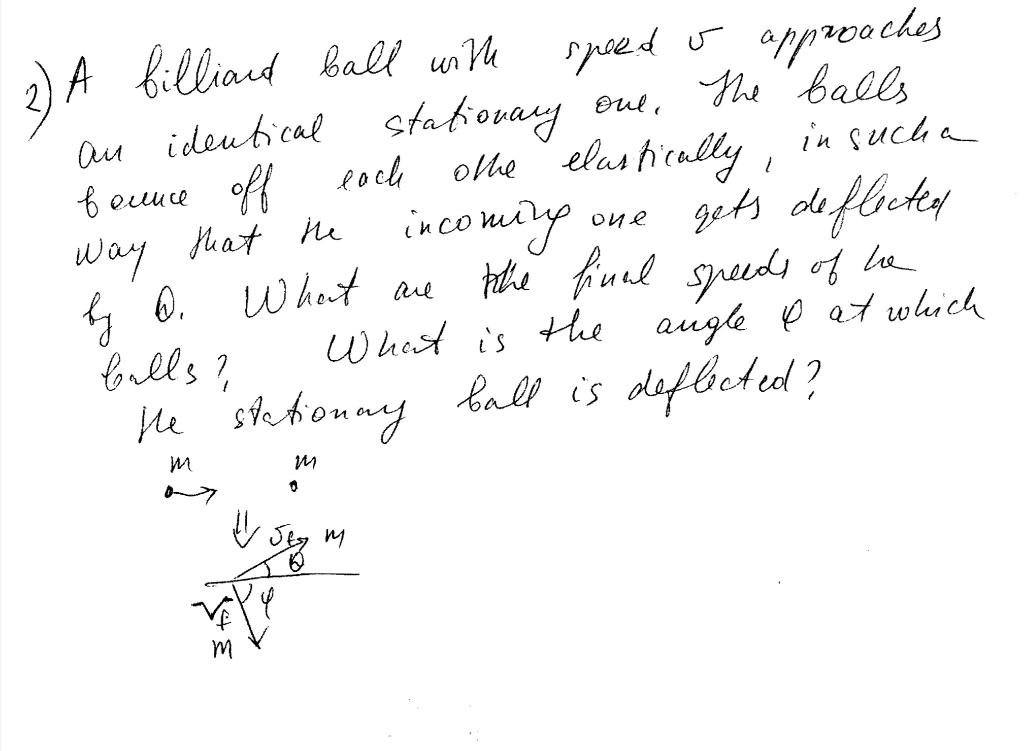 2) A billiard ball with speed v approaches
an identical stationary one. The balls
bounce off each othe elastically, in such a
way that the incoming one gets deflected
by θ. What are the final speeds of he
balls? What is the angle φ at which
the stationary ball is deflected?
m m
v_f m
θ
V_f φ
m